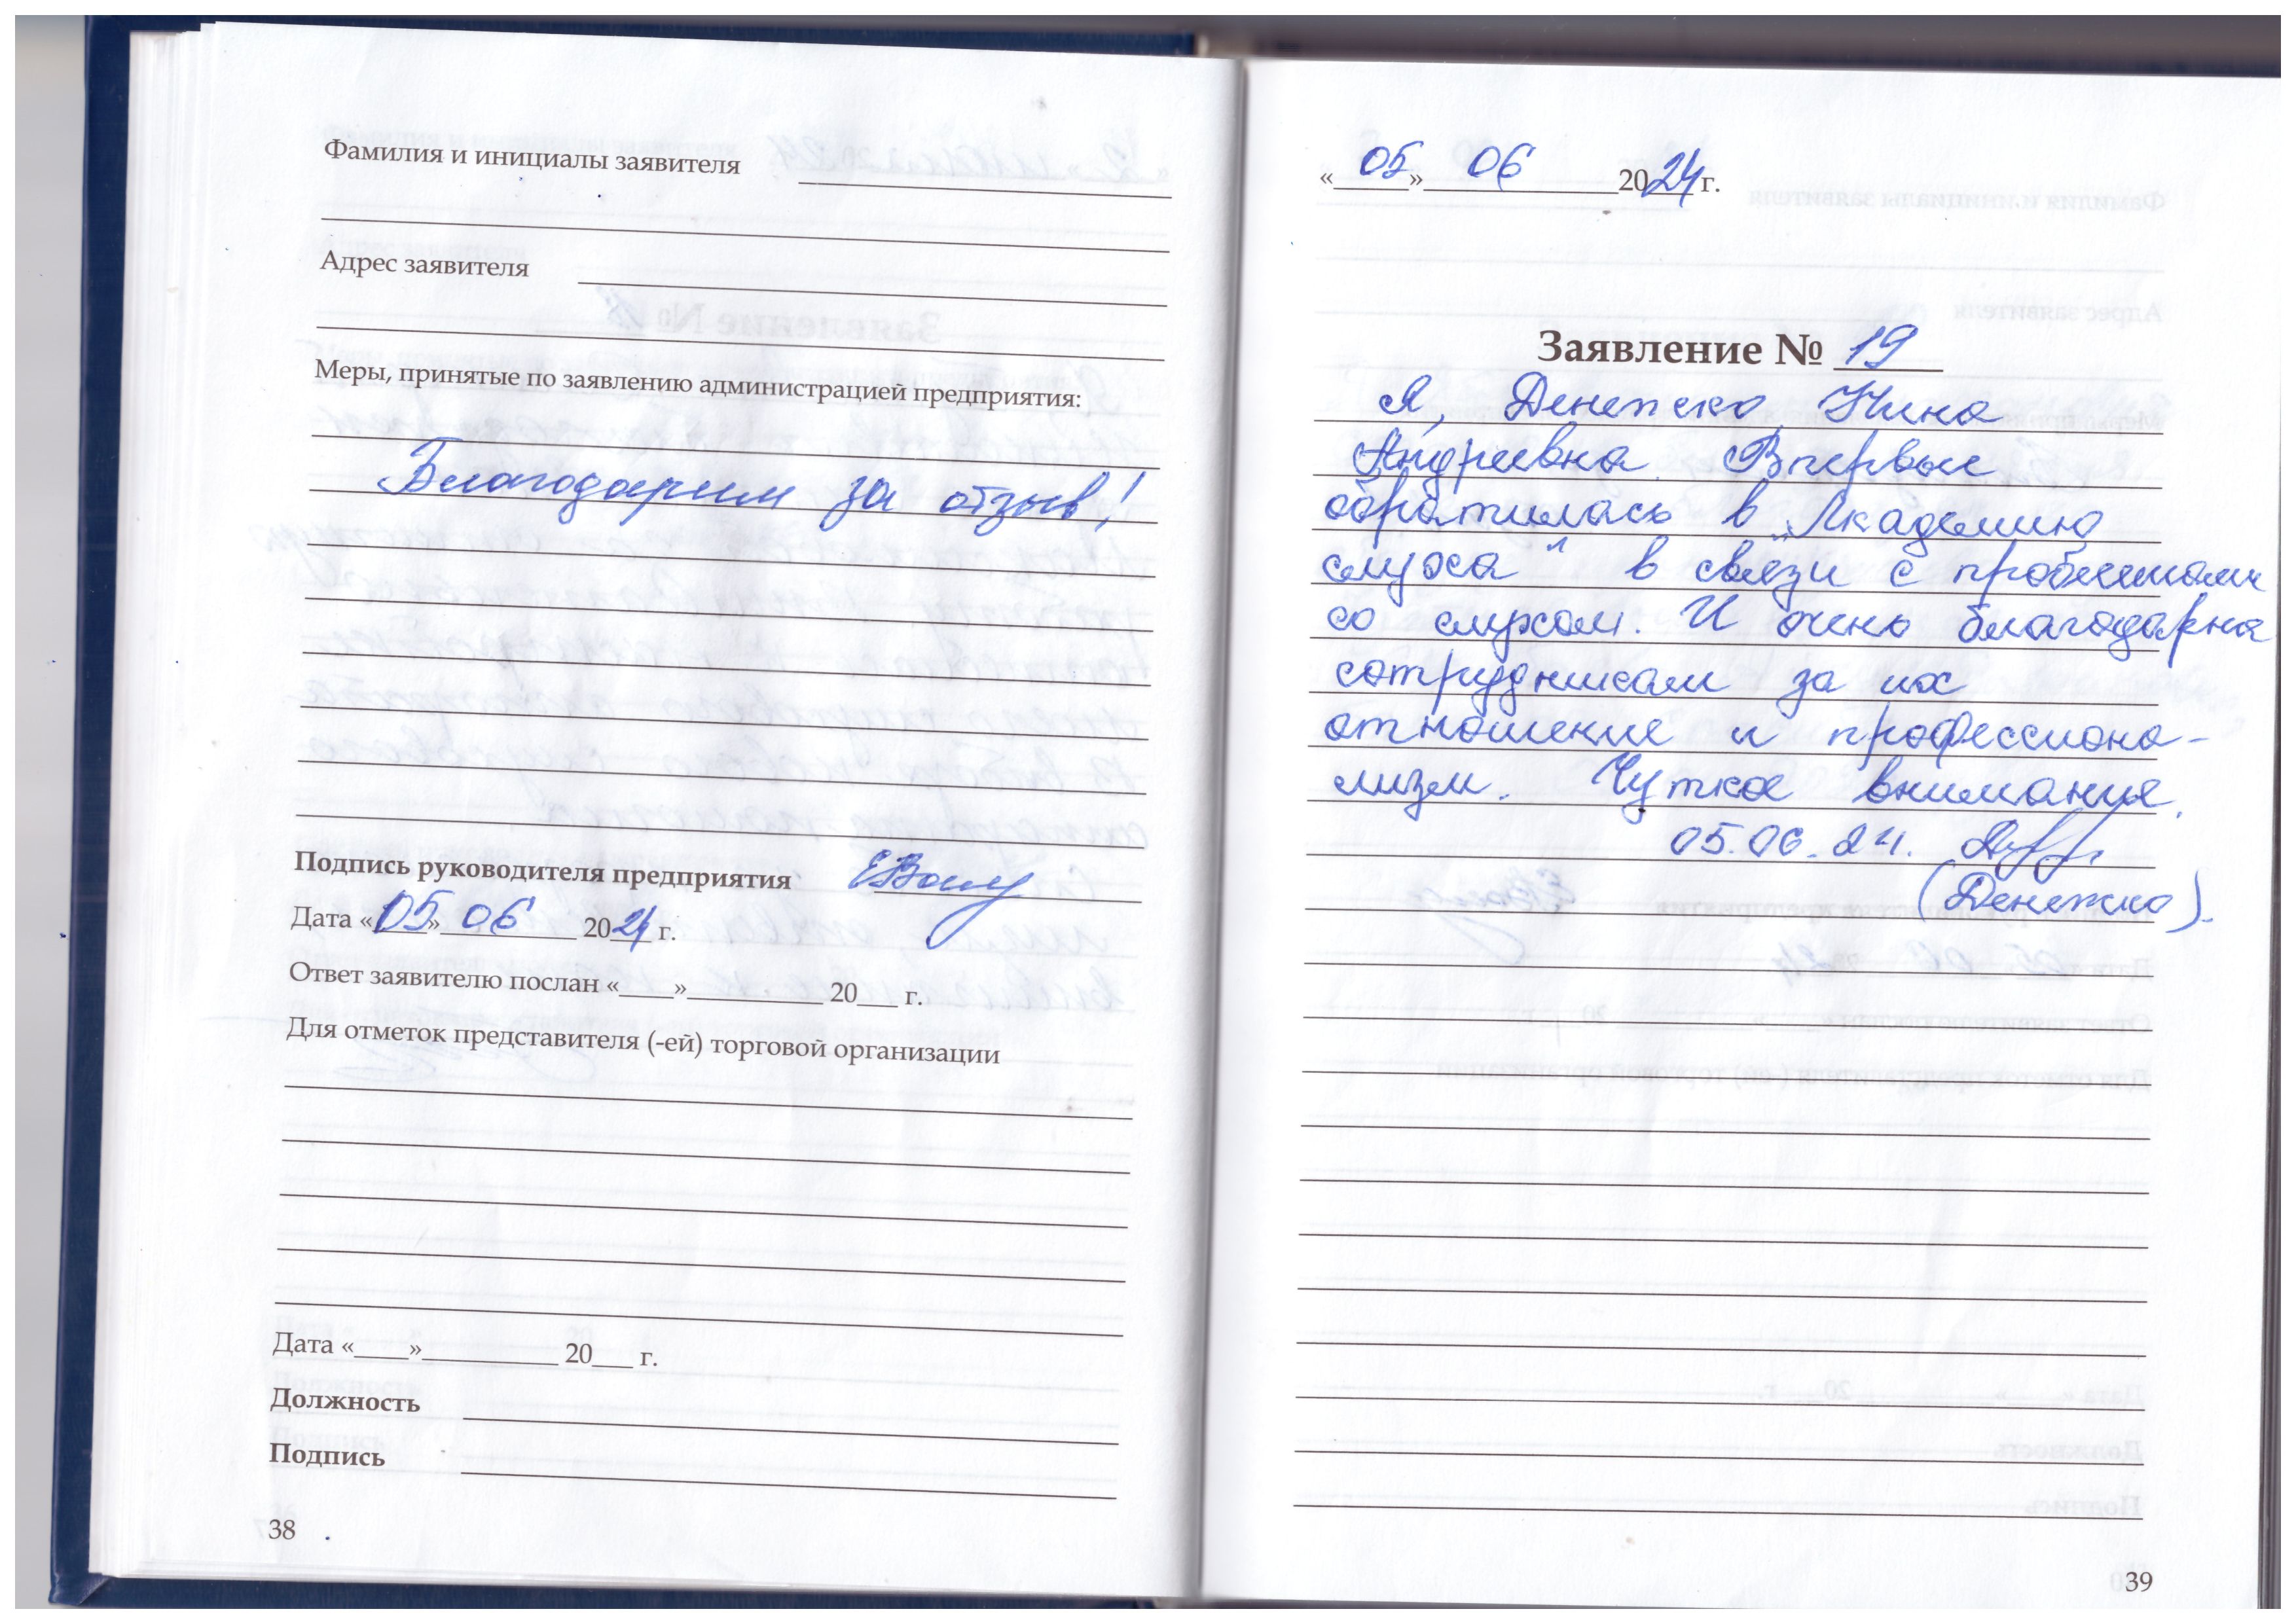 Фамилия и инициалы заявителя
Адрес заявителя
Меры, принятые по заявлению администрацией предприятия:
Благодарим за отзыв!
Подпись руководителя предприятия
Дата «05» 06 2024 г.
Ответ заявителю послан «____»__________ 20___ г.
Для отметок представителя (-ей) торговой организации
Дата «____»__________ 20___ г.
Должность
Подпись
38
«05» 06 2024 г.
Заявление № 19
Я, Денежко Нина
Андреевна. Впервые
обратилась в „Академию
слуха" в связи с проблемами
со слухом. И очень благодарна
сотрудникам за их
отношение и профессиона-
лизм. Чуткое внимание.
05.06.24.
(Денежко).
39